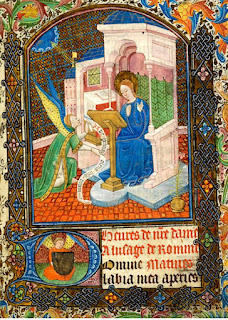 Heures de nre dame
A lusage de Romme
Domine
labia mea aperies